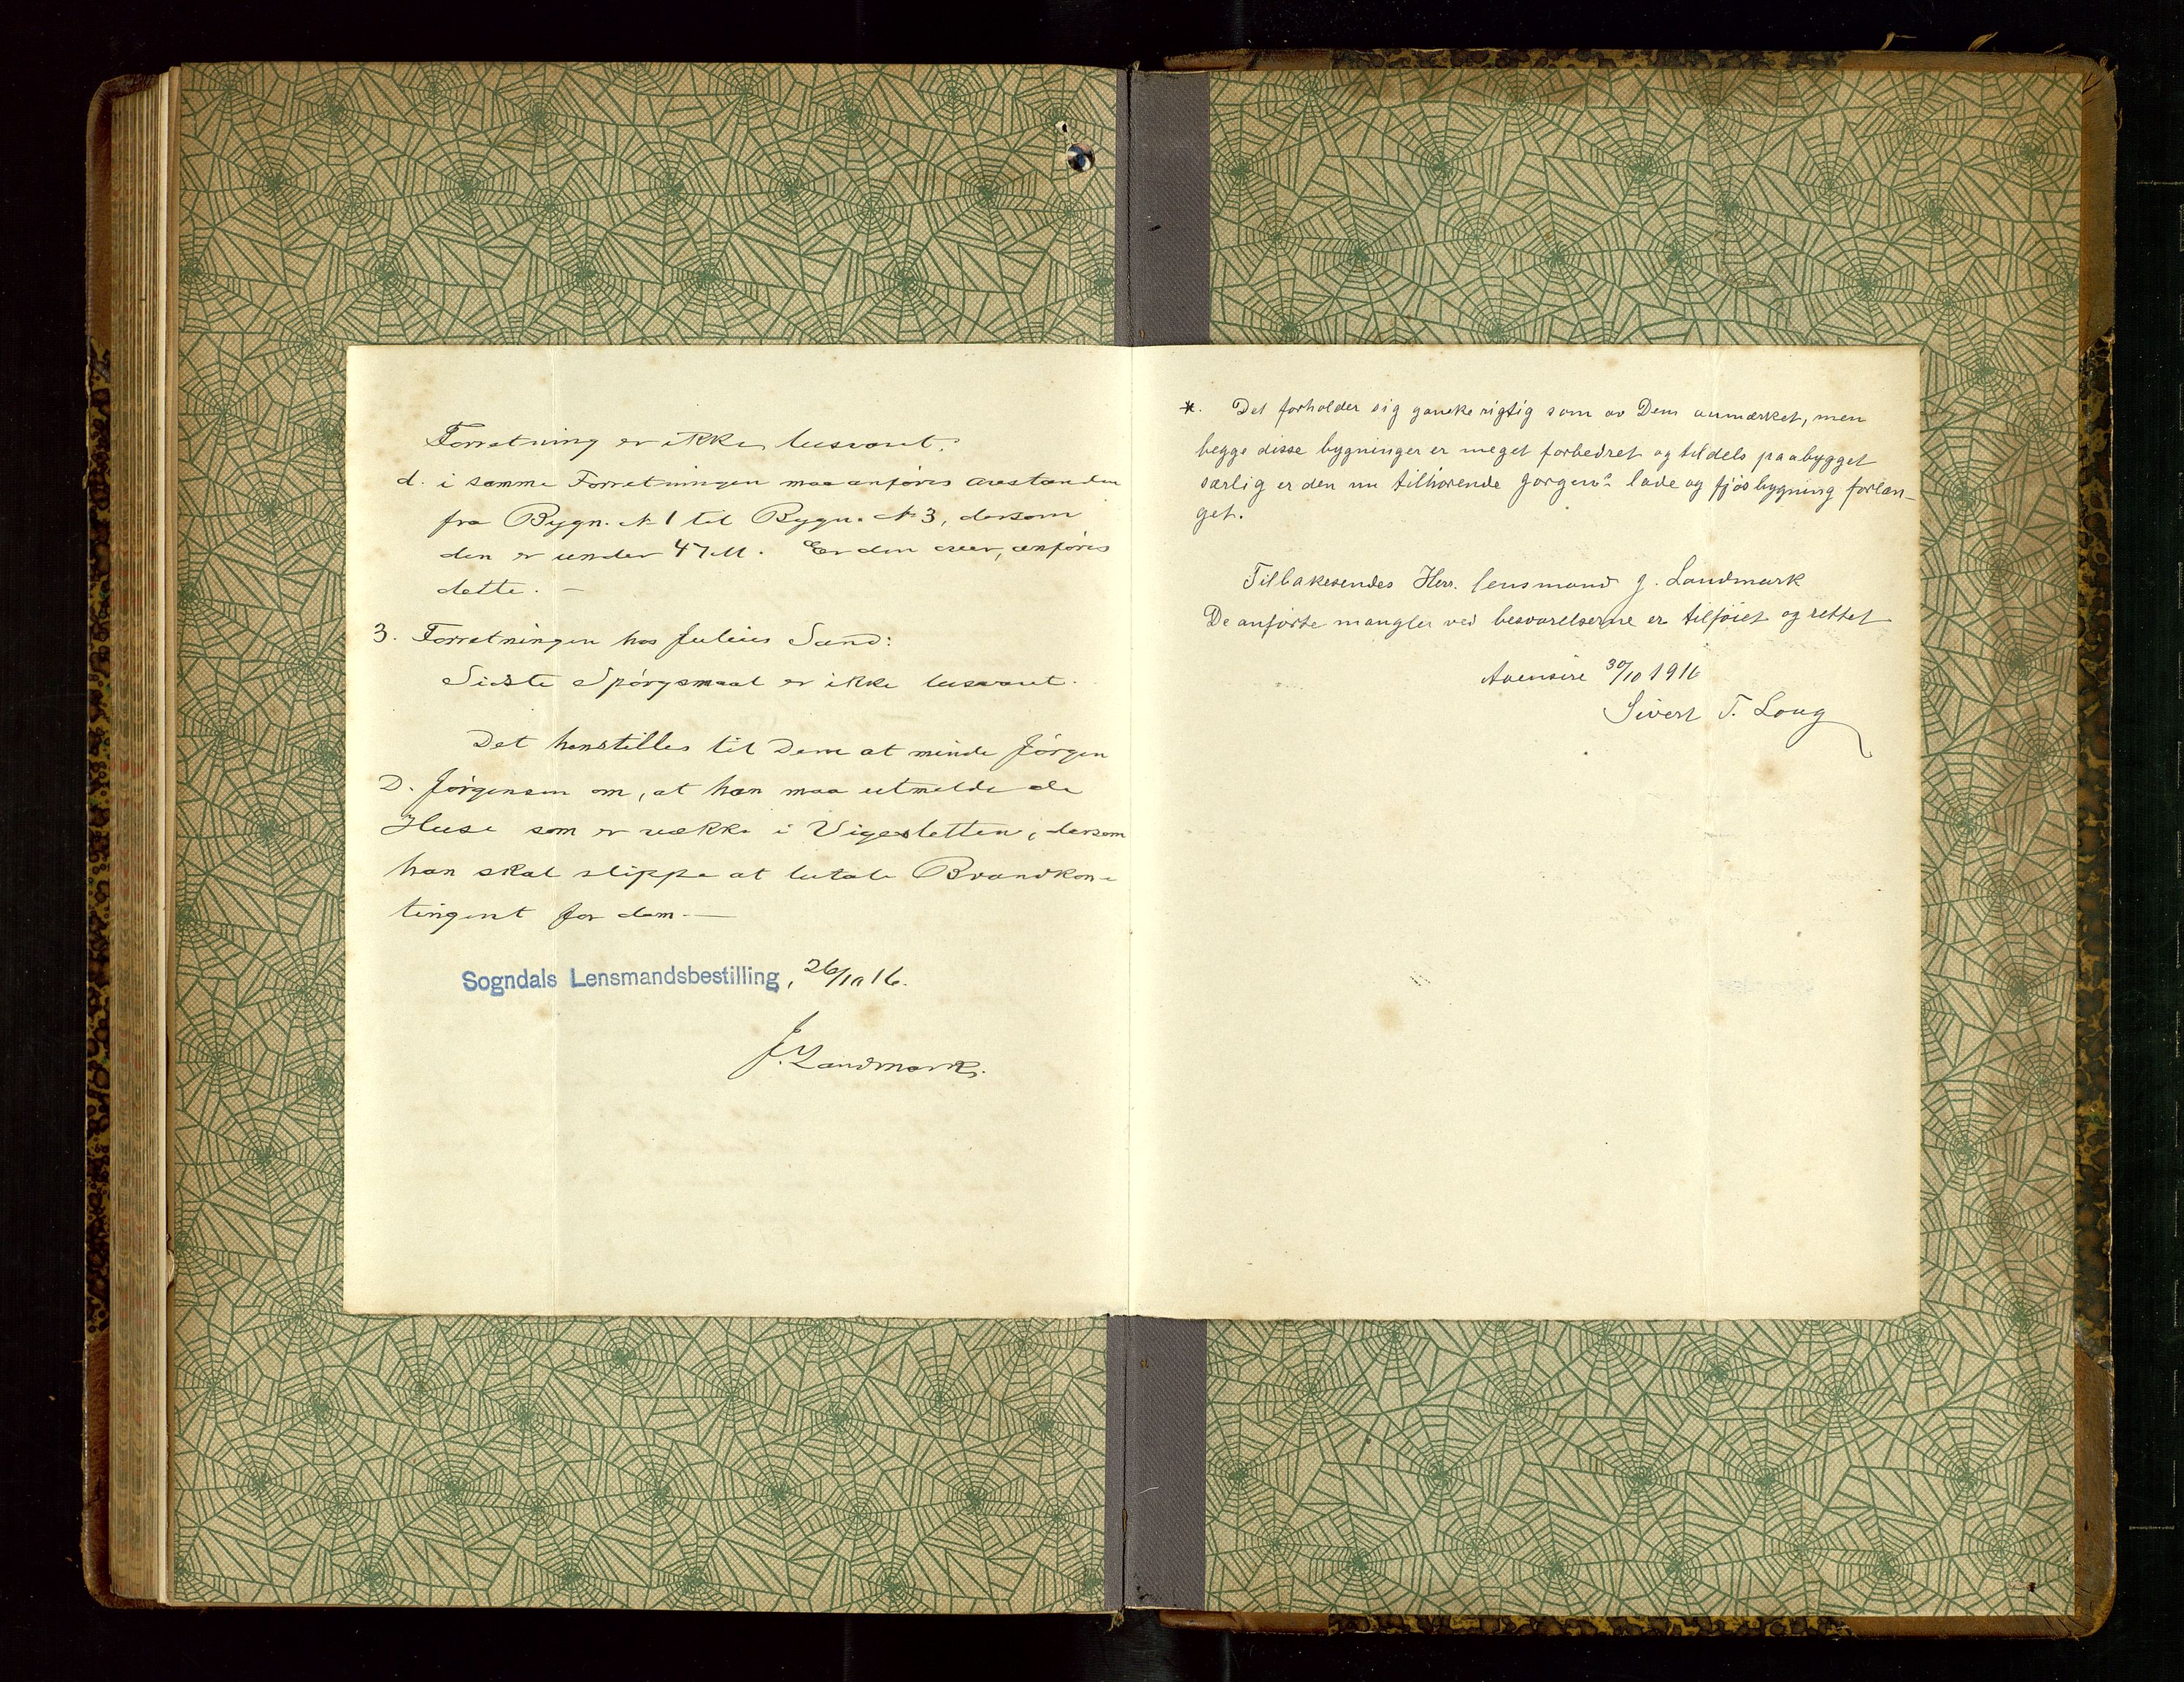 Forretning er ikke besvaret.
d. i samme Forretningen maa anføres avstanden
fra Bygn. № 1 til Bygn. № 3, dersom
den er under 47 M. Er den over, anføres
dette. —
3. Forretningen hos Julius Sand:
Sidste Spørgsmaal er ikke besvaret.
Det henstilles til Dem at minde Jørgen
D. Jørgensen om, at han maa utmelde de
Huse som er vækk i Vigesletten, dersom
han skal slippe at betale Brandkon-
tingent for dem. —
Sogndals Lensmandsbestilling, 26/10 16.
J. Landmark.
*. Det forholder sig ganske rigtig som av Dem anmærket, men
begge disse bygninger er meget forbedret og tildels paabygget
særlig er den nu tilhørende Jørgens lade og fjøsbygning forlæn-
get.
Tilbakesendes Herr. lensmand J. Landmark
De anførte mangler ved besvarelserne er tilføiet og rettet
30/10 1916
Sivert T. Loug